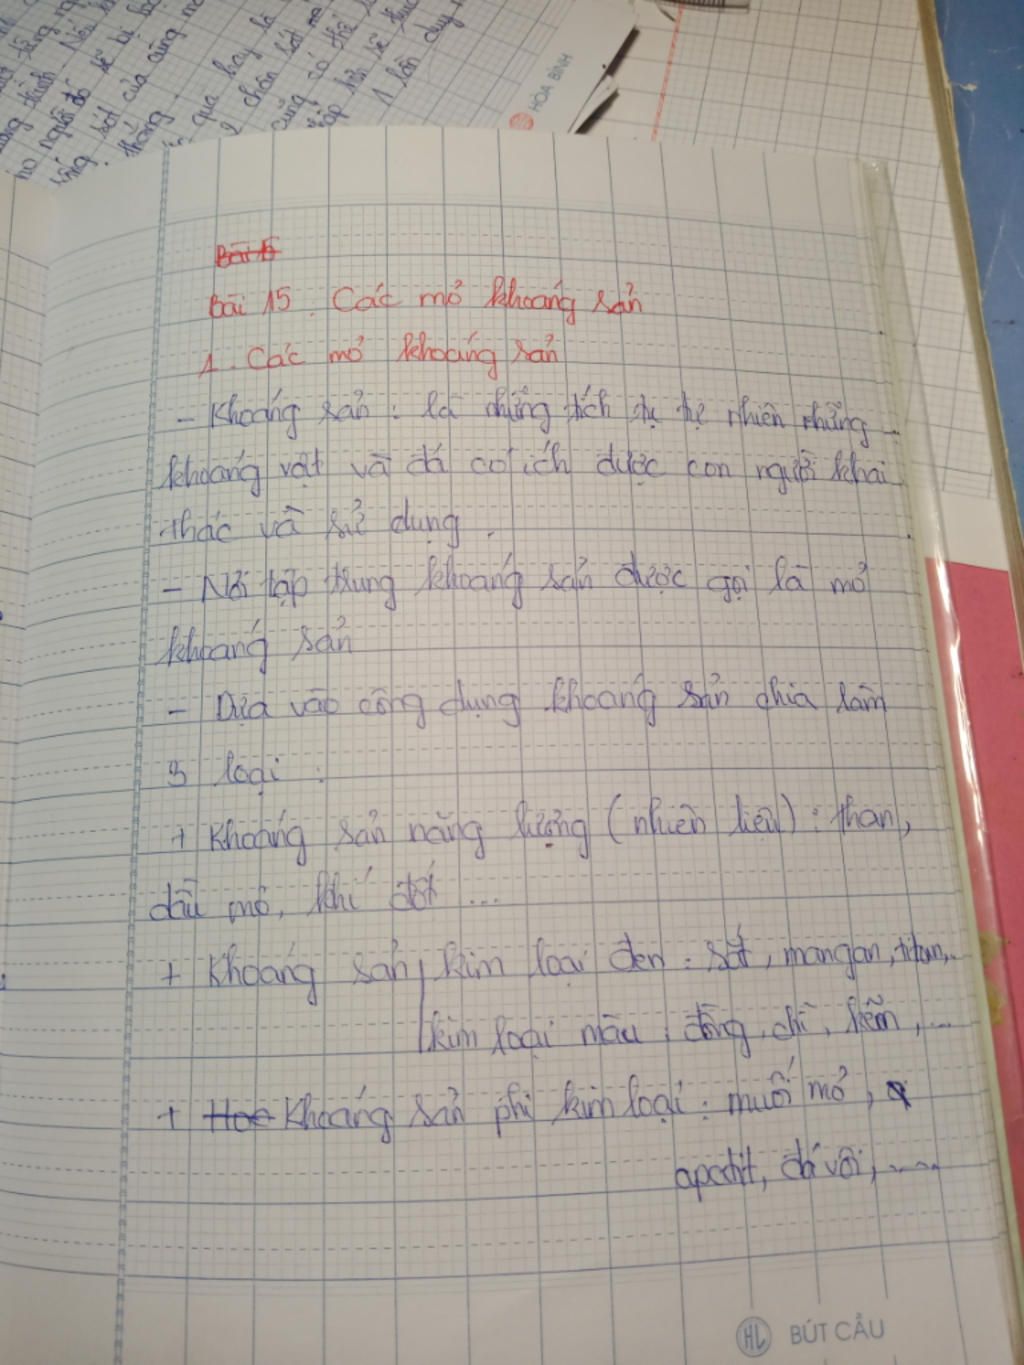 từng
thành Nếu
người đó sẽ bị
sút của cũng
thắng.
qua hay là
chân sút
cũng có thể
1 lần duy
HÒA BÌNH
Bài 15
Bài 15. Các mỏ khoáng sản
1. Các mỏ khoáng sản
- Khoáng sản : là những tích tụ tự nhiên những
khoáng vật và đá có ích được con người khai
thác và sử dụng.
- Nơi tập trung khoáng sản được gọi là mỏ
khoáng sản
- Dựa vào công dụng khoáng sản chia làm
3 loại :
+ Khoáng sản năng lượng (nhiên liệu) : than,
dầu mỏ, khí đốt ...
+ Khoáng sản kim loại đen : sắt, mangan, titan,..
kim loại màu : đồng, chì, kẽm, ...
+ Khoáng sản phi kim loại : muối mỏ,
apatit, đá vôi, .....
HL BÚT CẦU